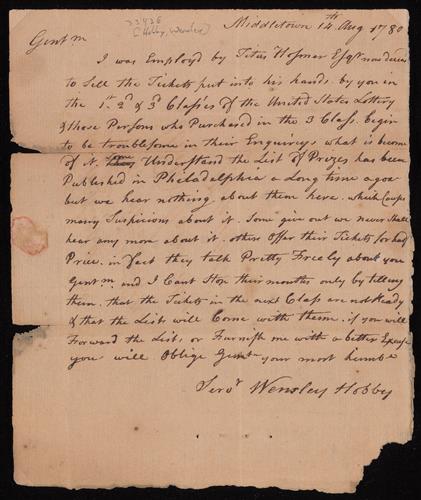 33426
(Hobby, Wensley)
Middletown 14th Aug 1780
Gentm
I was Employd by Titus Hosmer Esqr now decesd
to Sell the Tickets put into his hands by you in
the 1st 2d & 3d Classes of the United States Lottery
& those Persons who Purchased in the 3 Class begin
to be troublsome in their Enquireys what is become
of it. Understand the List of Prizes has been
Published in Philadelphia a Long time agoe
but we hear nothing about them here. which Causes
many Suspicions about it. Some give out we never Shall
hear any more about it. others Offer their Tickets for half
Price. in fact they talk Pretty Freely about you
Gentm and I Cant Stop their mouths only by telling
them that the Tickets in the next Class are not Ready
& that the Lists will Come with them. if you will
Forward the List, or Furnish me with a better Excuse
you will Oblige Gentm your most humbe
Servt Wensley Hobby